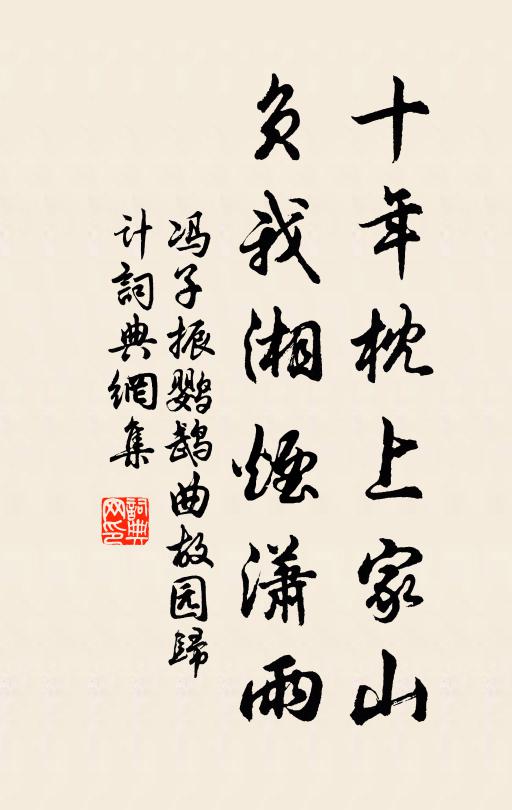 十年枕上家山
负我湘煙潇雨
冯子振鹦鹉曲故园歸
计詞典網集
詞典网印